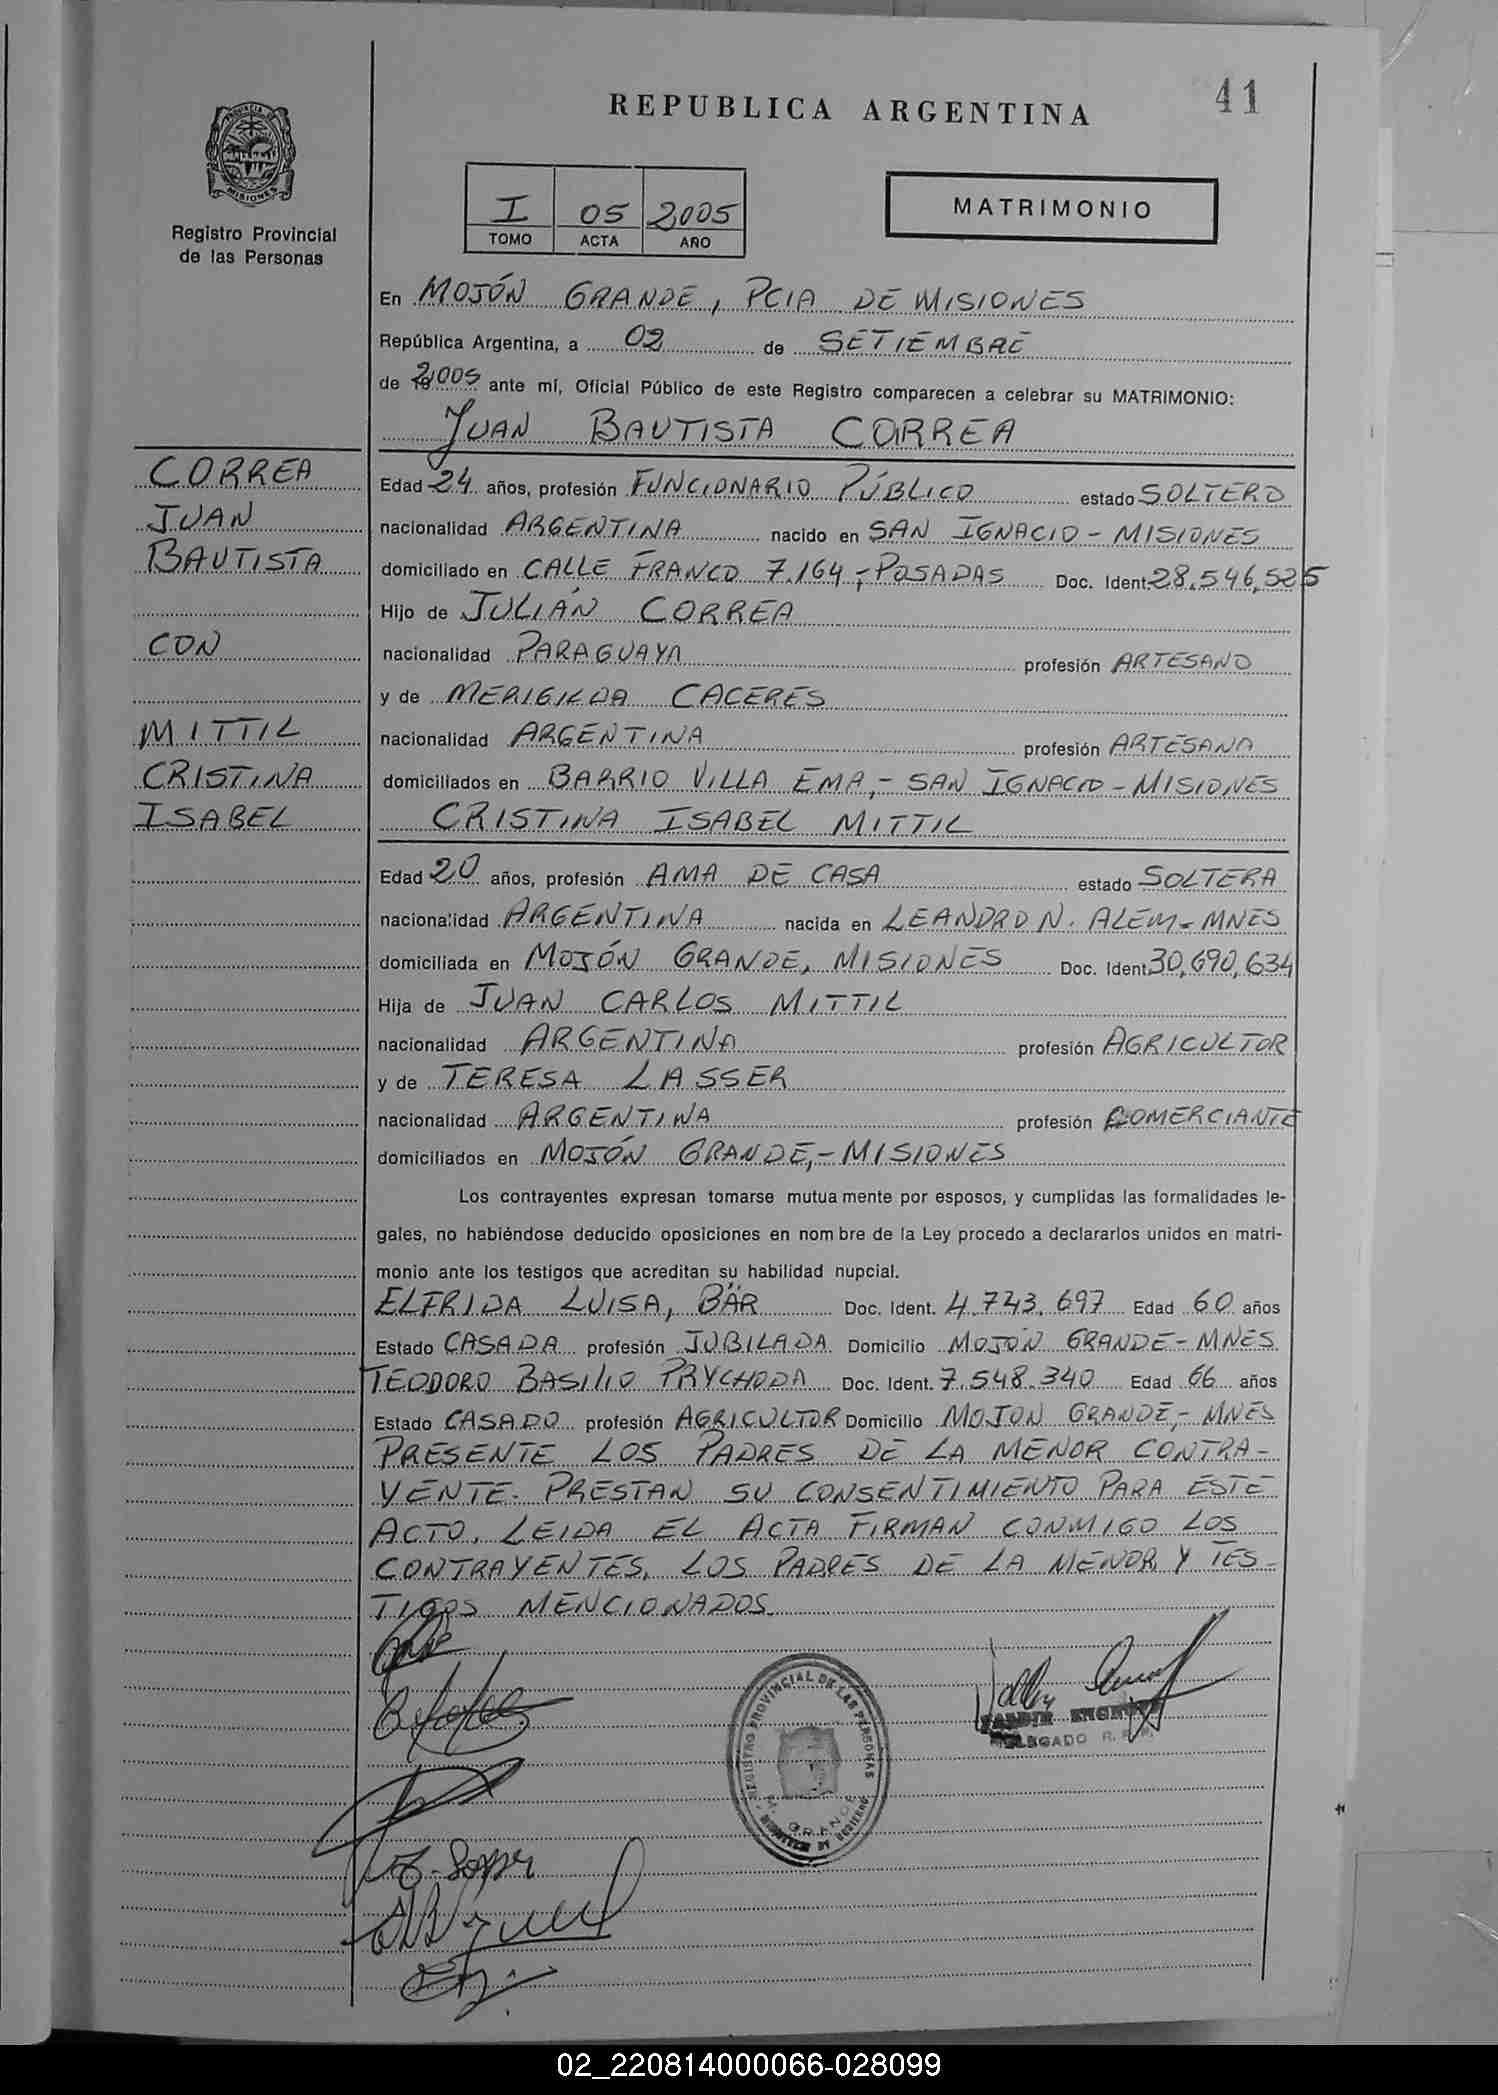 41
REPUBLICA ARGENTINA
PROVINCIA DE
MISIONES
Registro Provincial
de las Personas
I 05 2005
TOMO ACTA AÑO
MATRIMONIO
En MOJÓN GRANDE, PCIA DE MISIONES
República Argentina, a 02 de SETIEMBRE
de 2005 ante mí, Oficial Público de este Registro comparecen a celebrar su MATRIMONIO:
JUAN BAUTISTA CORREA
CORREA
JUAN
BAUTISTA
CON
MITTIL
CRISTINA
ISABEL
Edad 24 años, profesión FUNCIONARIO PÚBLICO estado SOLTERO
nacionalidad ARGENTINA nacido en SAN IGNACIO - MISIONES
domiciliado en CALLE FRANCO 7.164,- POSADAS Doc. Ident. 28.546.525
Hijo de JULIÁN CORREA
nacionalidad PARAGUAYA profesión ARTESANO
y de MERIGILDA CACERES
nacionalidad ARGENTINA profesión ARTESANA
domiciliados en BARRIO VILLA EMA,- SAN IGNACIO - MISIONES
CRISTINA ISABEL MITTIL
Edad 20 años, profesión AMA DE CASA estado SOLTERA
nacionalidad ARGENTINA nacida en LEANDRO N. ALEM - MNES
domiciliada en MOJÓN GRANDE, MISIONES Doc. Ident. 30,690,634
Hija de JUAN CARLOS MITTIL
nacionalidad ARGENTINA profesión AGRICULTOR
y de TERESA LASSER
nacionalidad ARGENTINA profesión COMERCIANTE
domiciliados en MOJÓN GRANDE,- MISIONES
Los contrayentes expresan tomarse mutuamente por esposos, y cumplidas las formalidades le-
gales, no habiéndose deducido oposiciones en nombre de la Ley procedo a declararlos unidos en matri-
monio ante los testigos que acreditan su habilidad nupcial.
ELFRIDA LUISA, BÄR Doc. Ident. 4.743.697 Edad 60 años
Estado CASADA profesión JUBILADA Domicilio MOJÓN GRANDE - MNES
TEODORO BASILIO PRYCHODA Doc. Ident. 7.548.340 Edad 66 años
Estado CASADO profesión AGRICULTOR Domicilio MOJON GRANDE,- MNES
PRESENTE LOS PADRES DE LA MENOR CONTRA-
YENTE. PRESTAN SU CONSENTIMIENTO PARA ESTE
ACTO. LEIDA EL ACTA FIRMAN CONMIGO LOS
CONTRAYENTES, LOS PADRES DE LA MENOR Y TES-
TIGOS MENCIONADOS.
REGISTRO PROVINCIAL DE LAS PERSONAS
M. GRANDE
MINISTERIO DE GOBIERNO
DELEGADO R.P.P.
02_220814000066-028099